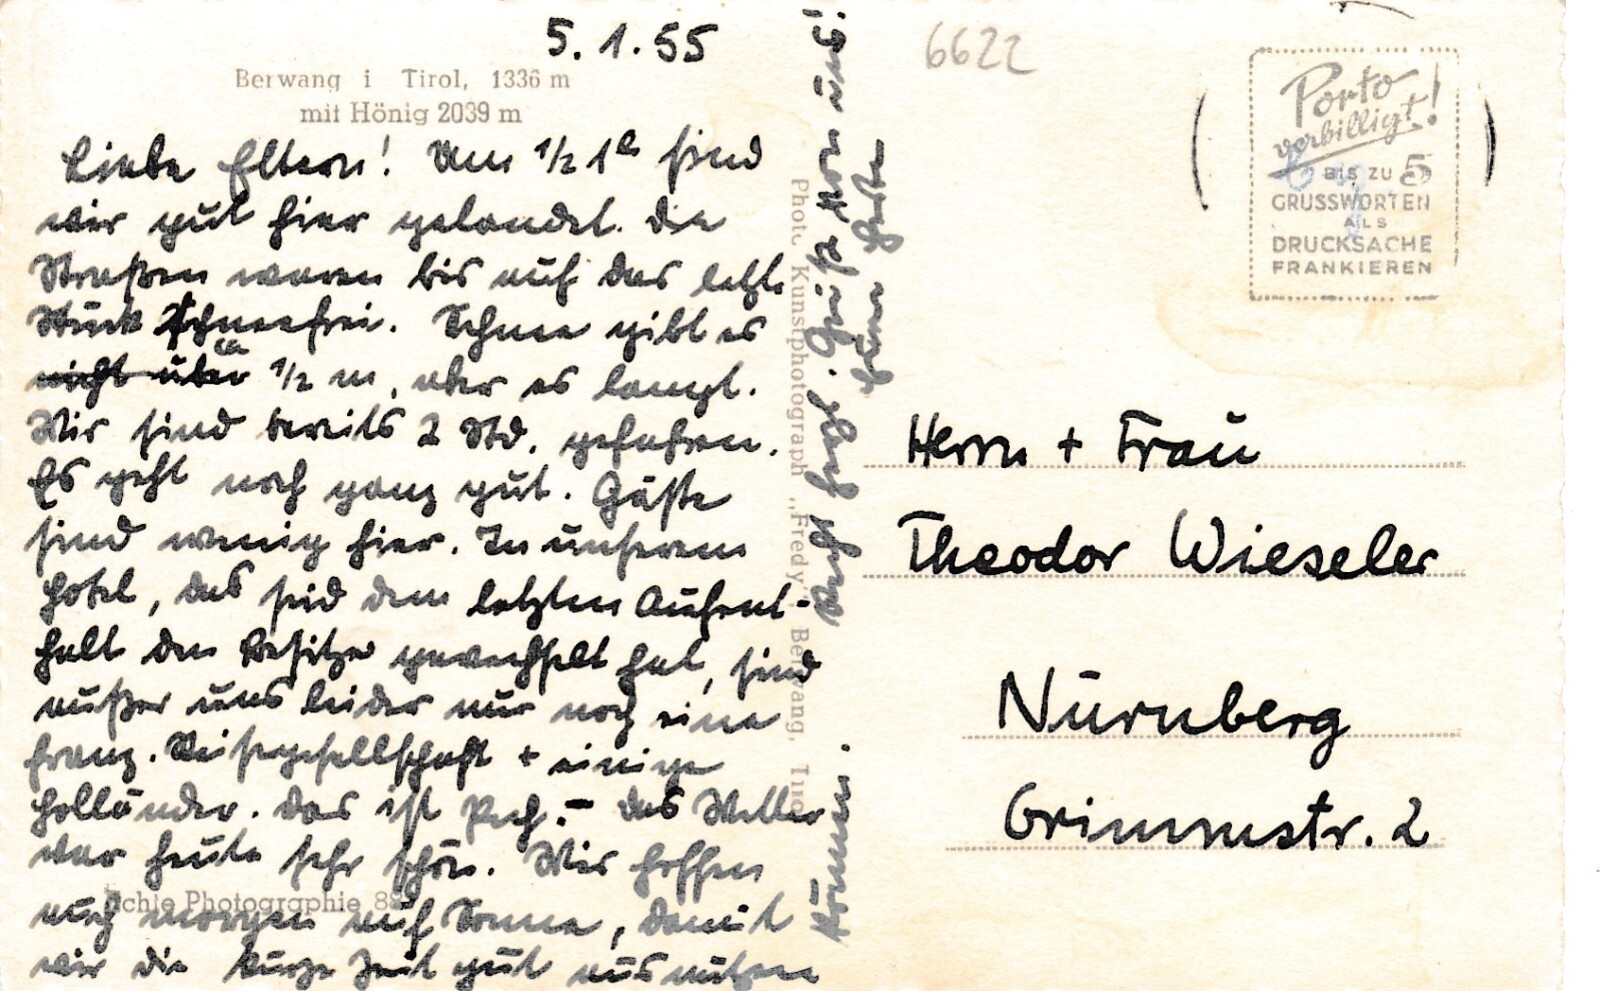 5.1.55
Berwang i Tirol, 1336 m
mit Hönig 2039 m
Liebe Eltern! Um 1/2 1h sind
wir gut hier gelandet. Die
Straßen waren bis auf das letzte
Stück schneefrei. Schnee gibt es
nicht über ca 1/2 m, aber es langt.
Wir sind bereits 2 Std. gefahren.
Es geht noch ganz gut. Gäste
sind wenig hier. In unserem
Hotel, das seid dem letzten Aufent-
halt den Besitzer gewechselt hat, sind
außer uns leider nur noch eine
franz. Reisegesellschaft + einige
Holländer. Das ist Pech. – Das Wetter
war heute sehr schön. Wir hoffen
auch morgen auf Sonne, damit
wir die kurze Zeit gut ausnutzen
können.
Recht herzl. Grüße von uns!
Eure
Echte Photographie
Photo Kunstphotograph „Fredy", Berwang, Tirol
6622
Porto
verbilligt!
BIS ZU 5
GRUSSWORTEN
ALS
DRUCKSACHE
FRANKIEREN
Herrn + Frau
Theodor Wieseler
Nürnberg
Grimmstr. 2